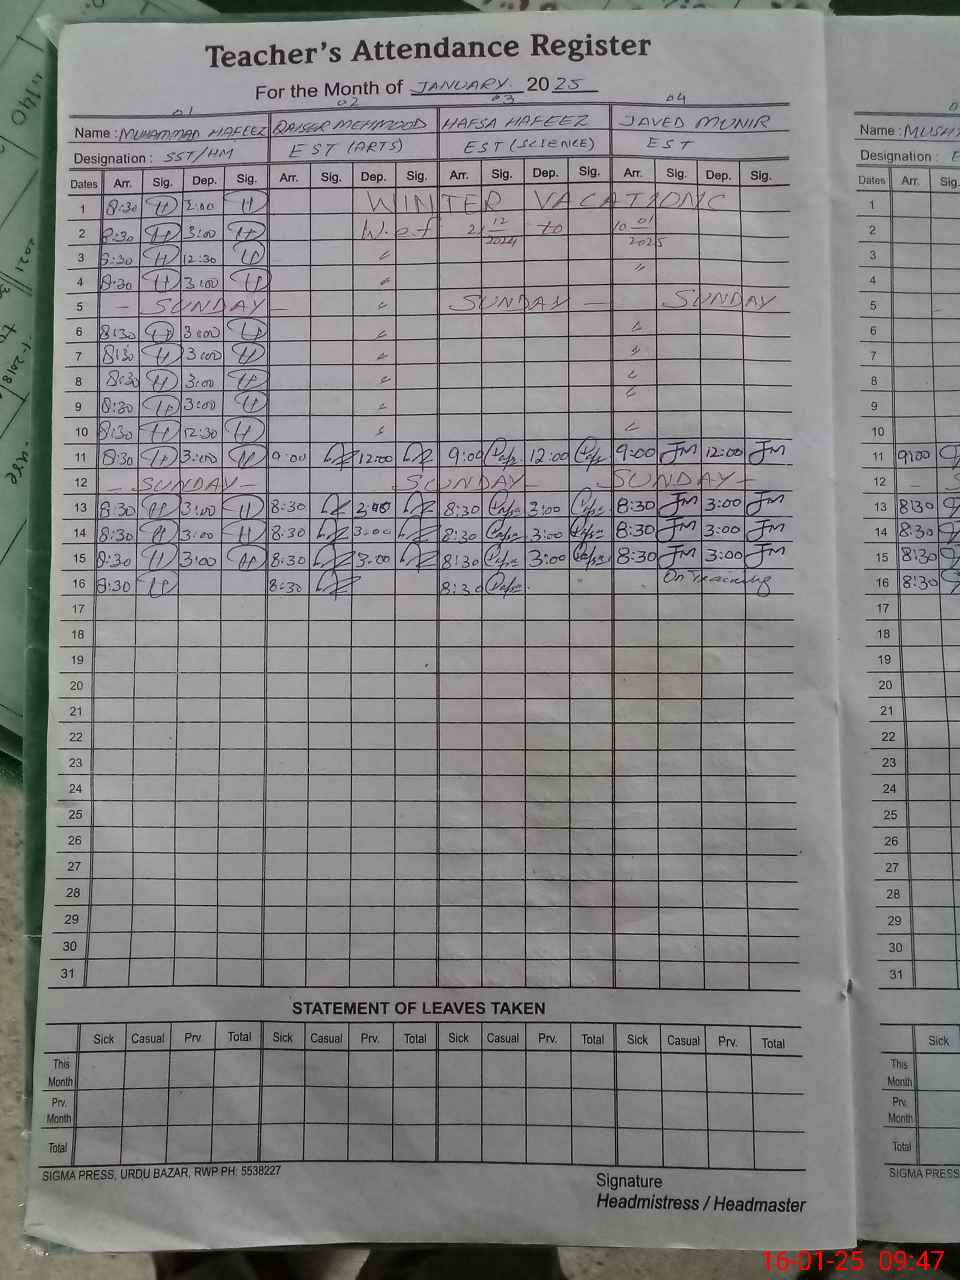 Teacher's Attendance Register
For the Month of JANUARY. 2025
01 02 03 04
Name : MUHAMMAD HAFEEZ QAISER MEHMOOD HAFSA HAFEEZ JAVED MUNIR Name : MUSH
Designation : SST/HM EST (ARTS) EST (SCIENCE) EST Designation : E
Dates Arr. Sig. Dep. Sig. Arr. Sig. Dep. Sig. Arr. Sig. Dep. Sig. Arr. Sig. Dep. Sig. Dates Arr. Sig.
1 8:30 H 2:00 H WINTER VACATIONS 1
2 8:30 H 3:00 H W.e.f 21 12 2024 to 10 01 2025 2
3 8:30 H 12:30 H 〃 3
4 8:30 H 3:00 H 〃 〃 4
5 – SUNDAY – 〃 SUNDAY – SUNDAY 5
6 8:30 H 3:00 H 〃 〃 6
7 8:30 H 3:00 H 〃 〃 7
8 8:30 H 3:00 H 〃 〃 8
9 8:30 H 3:00 H 〃 〃 9
10 8:30 H 12:30 H 〃 〃 10
11 8:30 H 3:00 H 9:00 12:00 9:00 12:00 9:00 JM 12:00 JM 11 9:00
12 – SUNDAY – SUNDAY – SUNDAY – 12
13 8:30 H 3:00 H 8:30 8:30 3:00 8:30 JM 3:00 JM 13 8:30
14 8:30 H 3:00 H 8:30 3:00 8:30 3:00 8:30 JM 3:00 JM 14 8:30
15 8:30 H 3:00 H 8:30 3:00 8:30 3:00 8:30 JM 3:00 JM 15 8:30
16 8:30 H 8:30 8:30 On Training 16 8:30
17 17
18 18
19 19
20 20
21 21
22 22
23 23
24 24
25 25
26 26
27 27
28 28
29 29
30 30
31 31
STATEMENT OF LEAVES TAKEN
Sick Casual Prv. Total Sick Casual Prv. Total Sick Casual Prv. Total Sick Casual Prv. Total Sick
This Month This Month
Prv. Month Prv. Month
Total Total
SIGMA PRESS, URDU BAZAR, RWP PH: 5538227 SIGMA PRESS
Signature
Headmistress / Headmaster
16-01-25 09:47